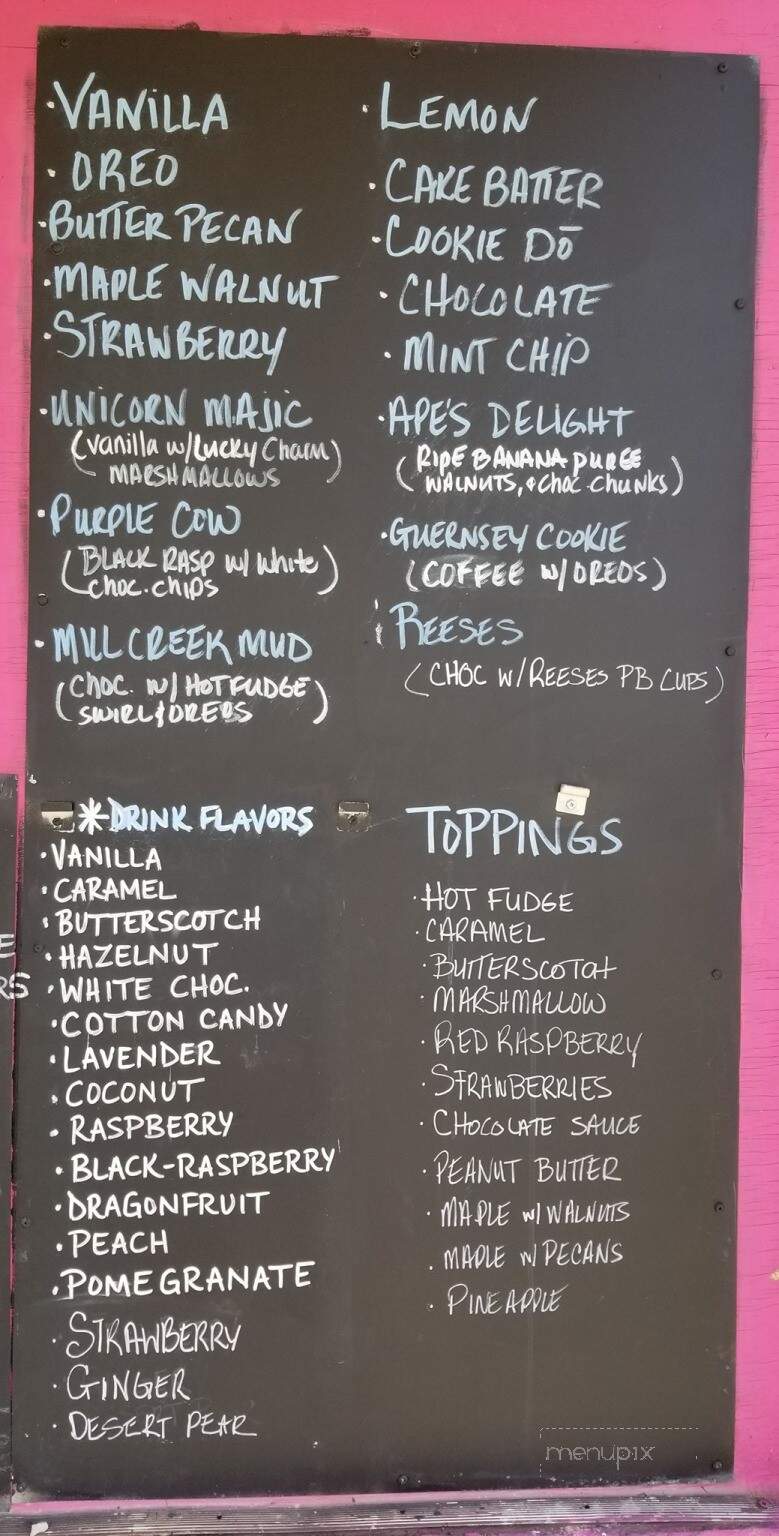 · VANILLA
· OREO
· BUTTER PECAN
· MAPLE WALNUT
· STRAWBERRY
· UNICORN MAJIC
(Vanilla w/Lucky Charm
MARSHMALLOWS)
· PURPLE COW
(BLACK RASP w/ White
Choc. chips)
· MILL CREEK MUD
(Choc. w/ HOT FUDGE
SWIRL & OREOS)
· LEMON
· CAKE BATTER
· COOKIE DŌ
· CHOCOLATE
· MINT CHIP
· APE'S DELIGHT
(RIPE BANANA PUREE
WALNUTS, & Choc. Chunks)
· GUERNSEY COOKIE
(COFFEE W/ OREOS)
REESES
(CHOC W/ REESES PB CUPS)
* DRINK FLAVORS
· VANILLA
· CARAMEL
· BUTTERSCOTCH
· HAZELNUT
· WHITE CHOC.
· COTTON CANDY
· LAVENDER
· COCONUT
· RASPBERRY
· BLACK-RASPBERRY
· DRAGONFRUIT
· PEACH
· POMEGRANATE
· STRAWBERRY
· GINGER
· DESERT PEAR
TOPPINGS
· HOT FUDGE
· CARAMEL
· BUTTERSCOTCH
· MARSHMALLOW
· RED RASPBERRY
· STRAWBERRIES
· CHOCOLATE SAUCE
· PEANUT BUTTER
· MAPLE w/ WALNUTS
· MAPLE w PECANS
· PINEAPPLE
E
RS
menupix